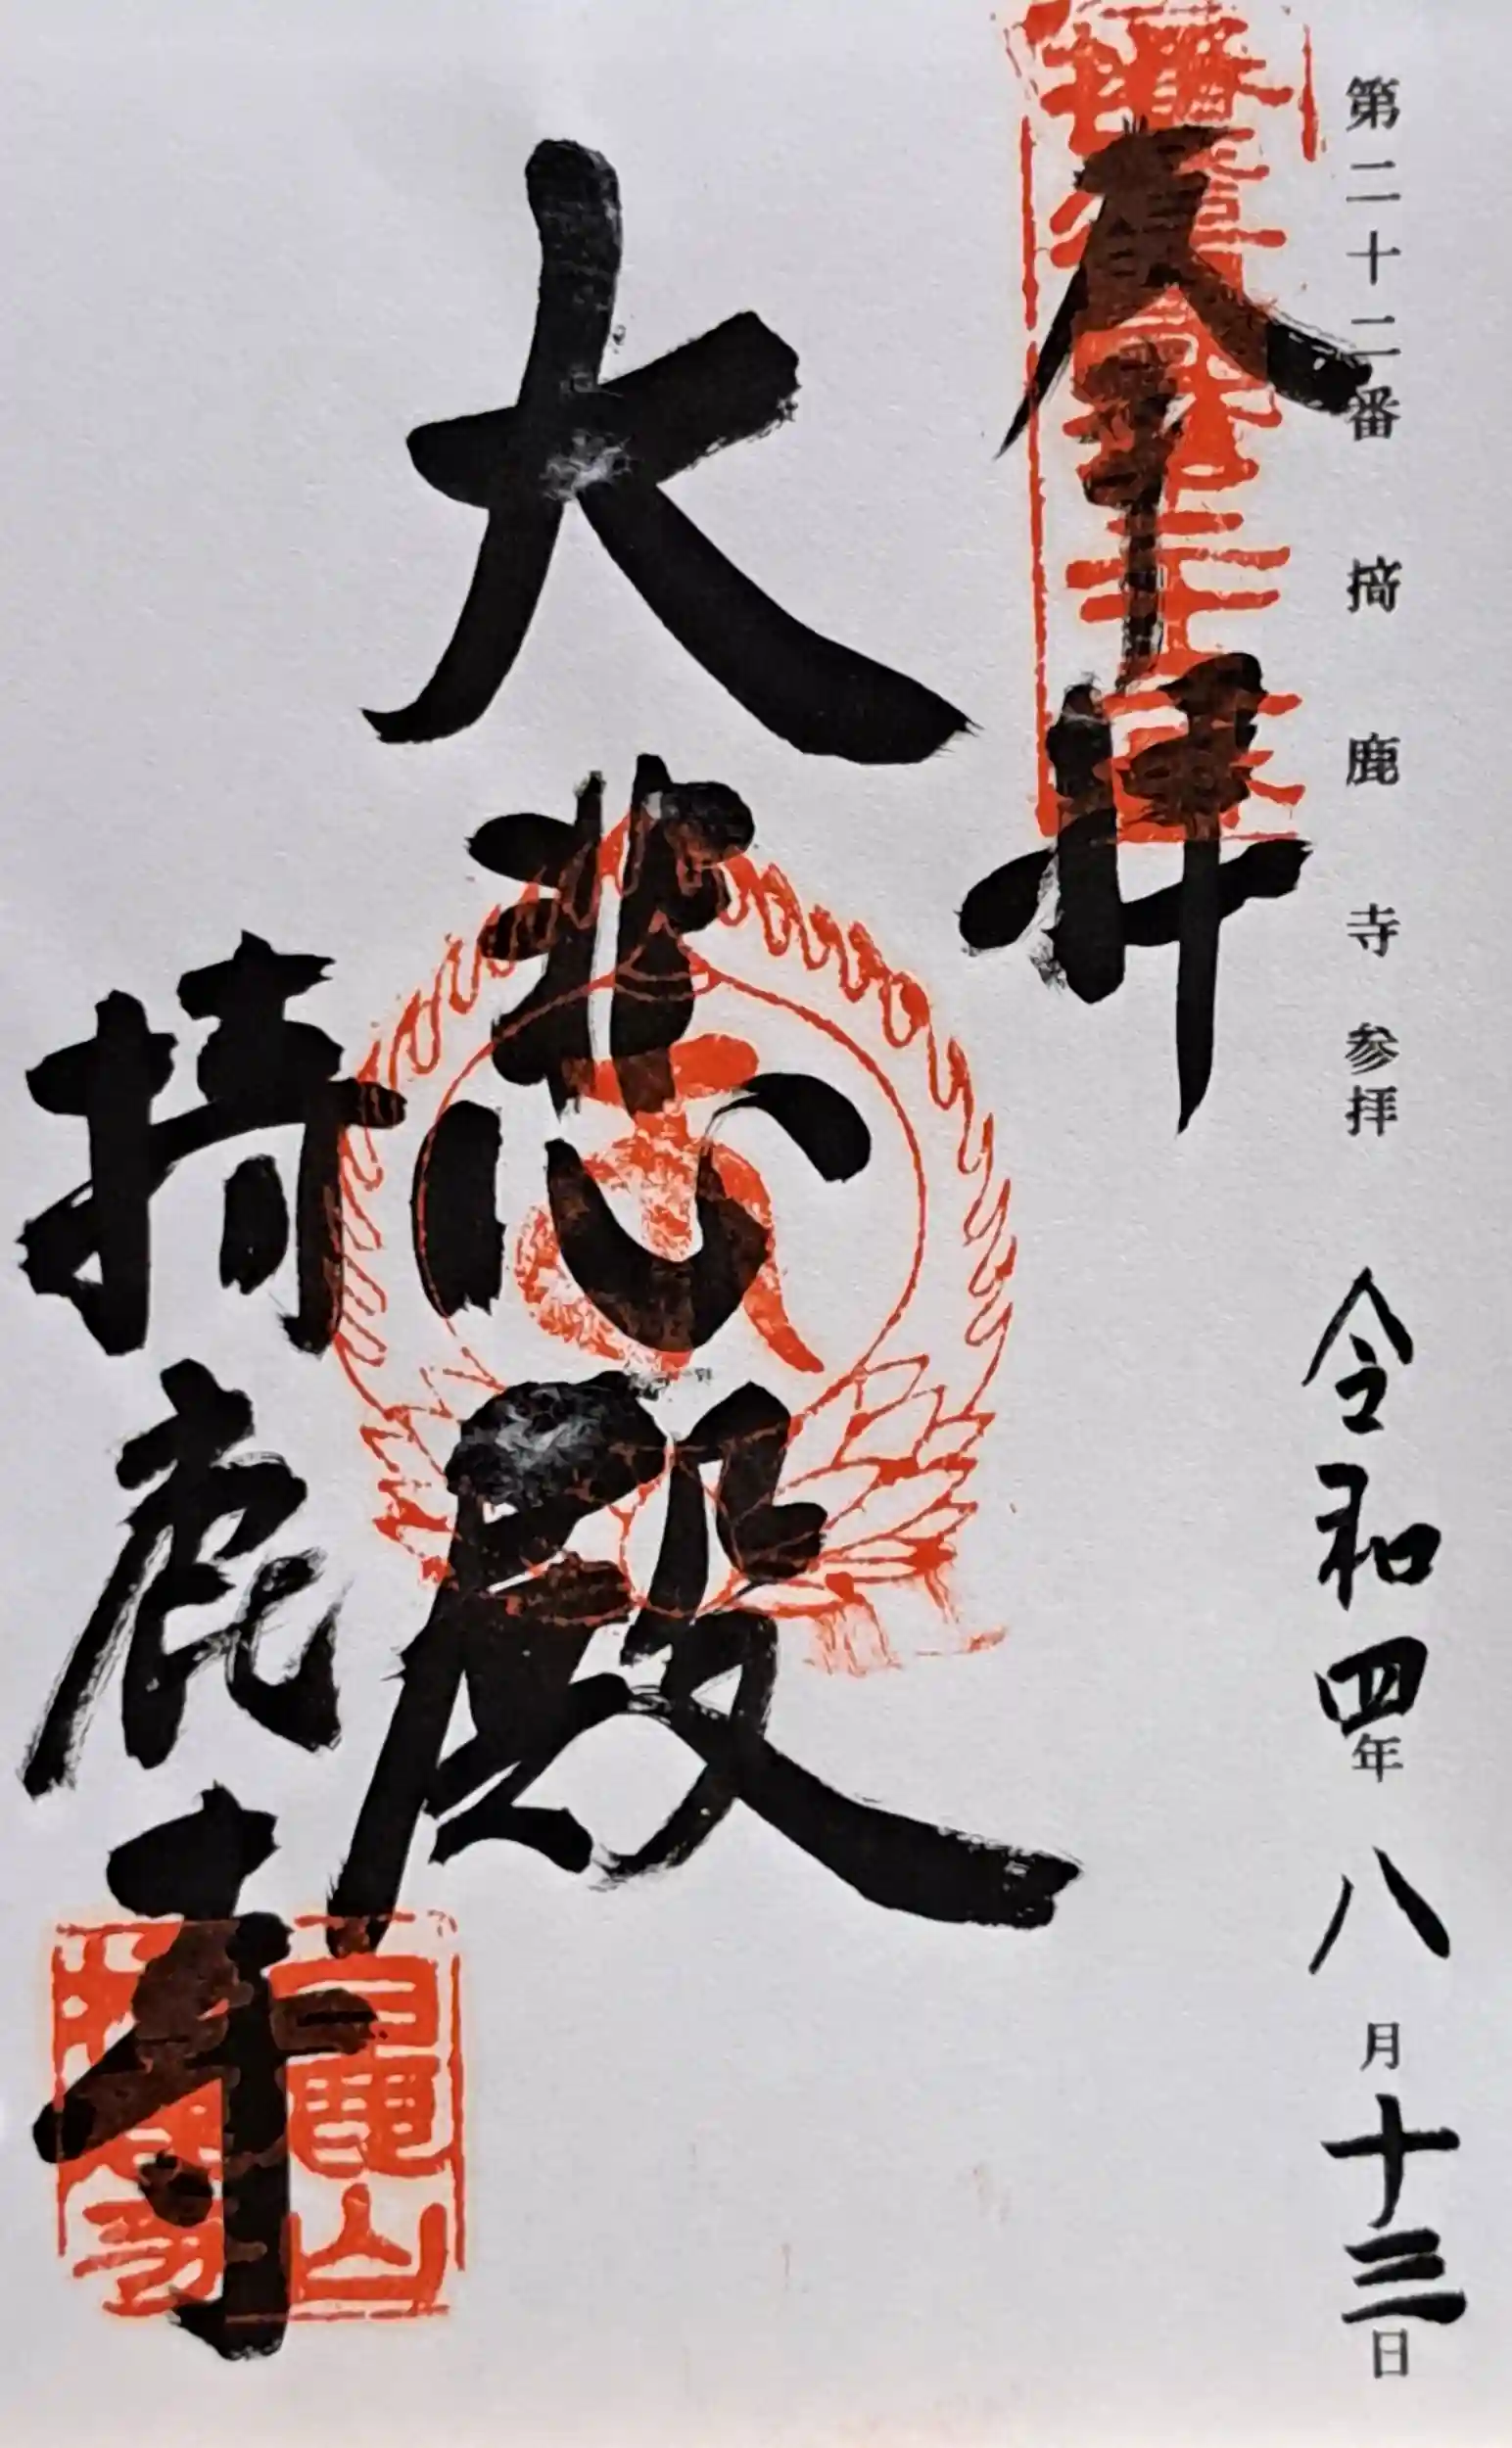 第二十二番 掎鹿寺参拝 令和四年八月十三日
奉拝
大悲殿
掎鹿寺
白鹿山